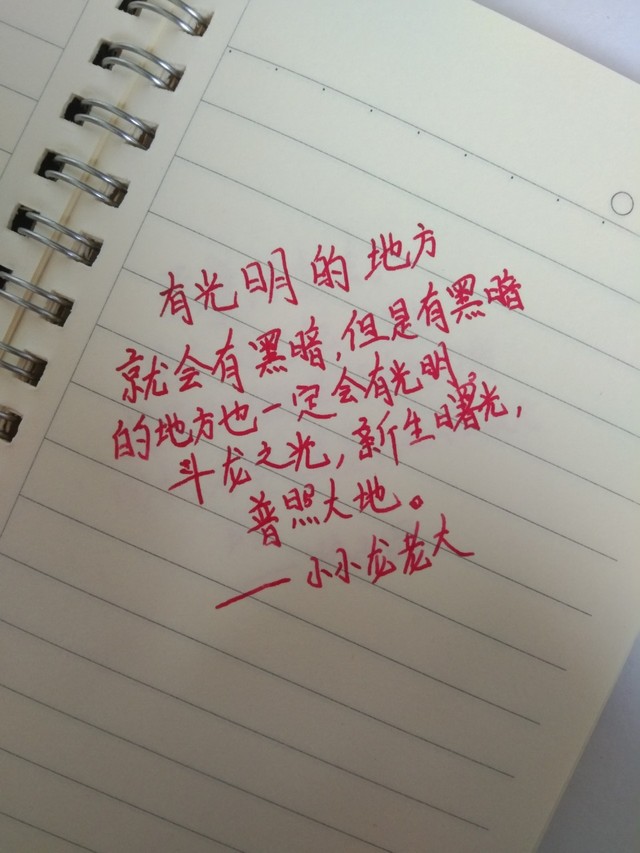 有光明的地方
就会有黑暗,但是有黑暗
的地方也一定会有光明。
斗龙之光,新生曙光,
普照大地。
——小小龙老大